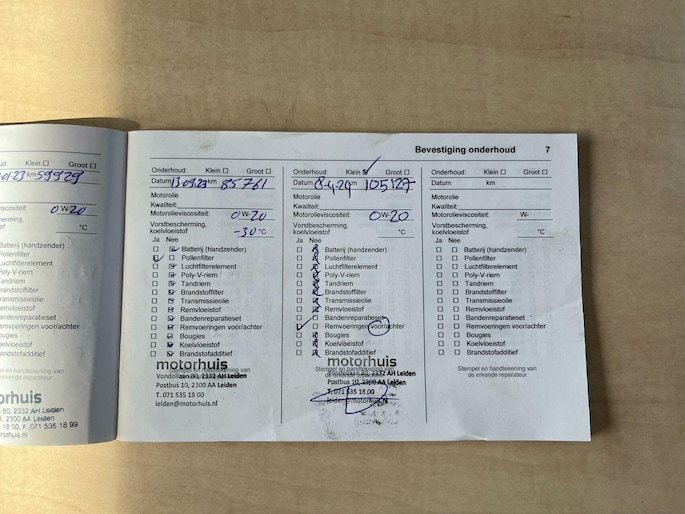 Bevestiging onderhoud 7
oud: Klein ☐ Groot ☐
01.23 km 59929
0W-20
bescherming,
°C
Batterij (handzender)
Pollenfilter
Luchtfilterelement
Poly-V-riem
Tandriem
Brandstoffilter
Transmissieolie
Remvloeistof
Bandenreparatieset
Remvoeringen voor/achter
Bougies
Koelvloeistof
Brandstofadditief
orhuis
60, 2332 AH Leiden
, 2300 AA Leiden
18 00, F. 071 535 18 99
torhuis.nl
Onderhoud: Klein ☐ Groot ☐
Datum 13.09.23 km 85761
Motorolie
Kwaliteit:
Motorolieviscositeit: 0W-20
Vorstbescherming,
koelvloeistof -30 °C
Ja Nee
Batterij (handzender)
Pollenfilter
Luchtfilterelement
Poly-V-riem
Tandriem
Brandstoffilter
Transmissieolie
Remvloeistof
Bandenreparatieset
Remvoeringen voor/achter
Bougies
Koelvloeistof
Brandstofadditief
motorhuis
Vondellaan 80, 2332 AH Leiden
Postbus 10, 2300 AA Leiden
T. 071 535 18 00
leiden@motorhuis.nl
Onderhoud: Klein ☑ Groot ☐
Datum 8-4-24 km 105127
Motorolie
Kwaliteit:
Motorolieviscositeit: 0W-20
Vorstbescherming,
koelvloeistof °C
Ja Nee
Batterij (handzender)
Pollenfilter
Luchtfilterelement
Poly-V-riem
Tandriem
Brandstoffilter
Transmissieolie
Remvloeistof
Bandenreparatieset
Remvoeringen voor/achter
Bougies
Koelvloeistof
Brandstofadditief
motorhuis
Vondellaan 80, 2332 AH Leiden
Postbus 10, 2300 AA Leiden
T. 071 535 18 00
leiden@motorhuis.nl
Onderhoud: Klein ☐ Groot ☐
Datum km
Motorolie
Kwaliteit:
Motorolieviscositeit: W-
Vorstbescherming,
koelvloeistof °C
Ja Nee
Batterij (handzender)
Pollenfilter
Luchtfilterelement
Poly-V-riem
Tandriem
Brandstoffilter
Transmissieolie
Remvloeistof
Bandenreparatieset
Remvoeringen voor/achter
Bougies
Koelvloeistof
Brandstofadditief
Stempel en handtekening van
de erkende reparateur